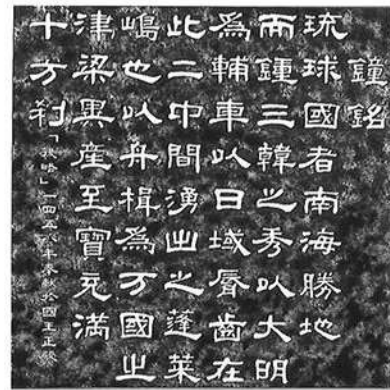 鐘銘
琉球國者南海勝地
而鍾三韓之秀以大明
爲輔車以日域脣齒在
此二中間湧出之蓬萊
嶋也以舟楫爲万國之
津梁異産至寶充滿
十方刹「後略」一四五八年奉献於國王正殿